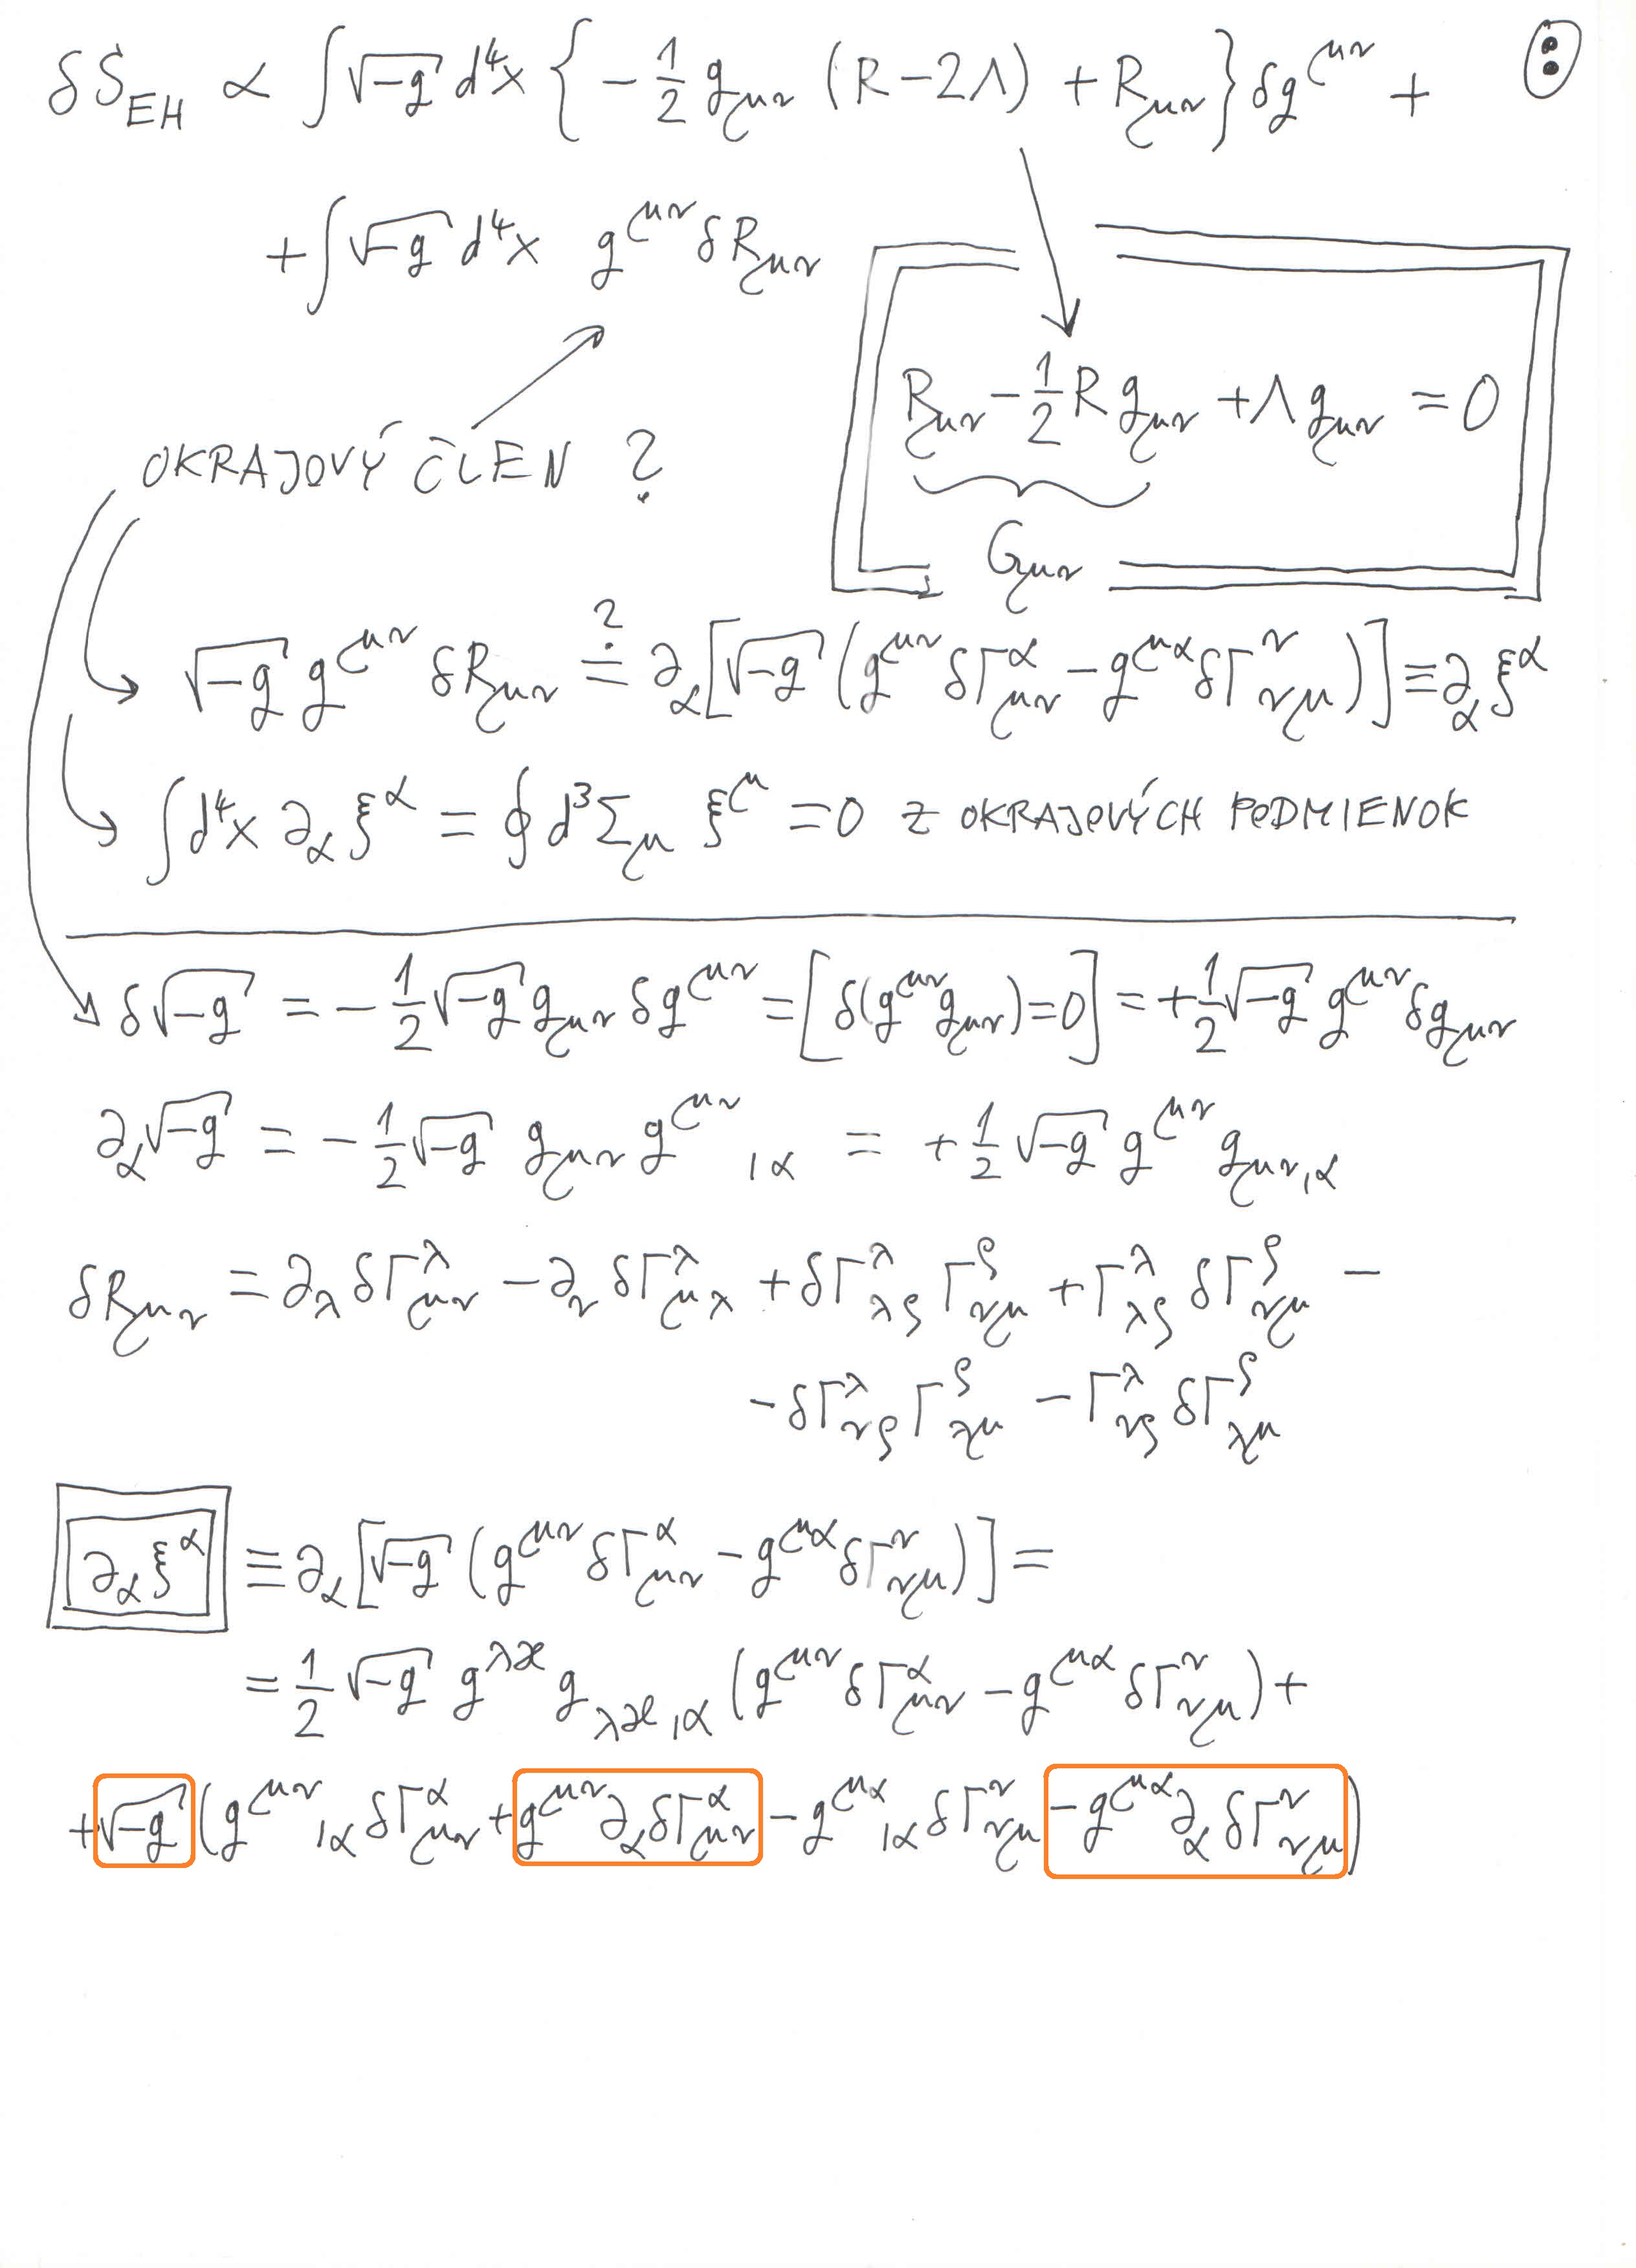 δS_EH ∝ ∫√-g d⁴x { -1/2 g_μν (R-2Λ) + R_μν } δg^μν +
+ ∫√-g d⁴x g^μν δR_μν
R_μν - 1/2 R g_μν + Λ g_μν = 0
OKRAJOVÝ ČLEN ?
G_μν
√-g g^μν δR_μν ≟ ∂_α[√-g (g^μν δΓ^α_μν - g^μα δΓ^ν_νμ)] ≡ ∂_α ξ^α
∫d⁴x ∂_α ξ^α = ∮ d³Σ_μ ξ^μ = 0 Z OKRAJOVÝCH PODMIENOK
δ√-g = -1/2 √-g g_μν δg^μν = [δ(g^μν g_μν)=0] = +1/2 √-g g^μν δg_μν
∂_α√-g = -1/2 √-g g_μν g^μν_,α = +1/2 √-g g^μν g_μν,α
δR_μν = ∂_λ δΓ^λ_μν - ∂_ν δΓ^λ_μλ + δΓ^λ_λρ Γ^ρ_νμ + Γ^λ_λρ δΓ^ρ_νμ -
- δΓ^λ_νρ Γ^ρ_λμ - Γ^λ_νρ δΓ^ρ_λμ
∂_α ξ^α ≡ ∂_α[√-g (g^μν δΓ^α_μν - g^μα δΓ^ν_νμ)] =
= 1/2 √-g g^λϰ g_λϰ,α (g^μν δΓ^α_μν - g^μα δΓ^ν_νμ) +
+ √-g (g^μν_,α δΓ^α_μν + g^μν ∂_α δΓ^α_μν - g^μα_,α δΓ^ν_νμ - g^μα ∂_α δΓ^ν_νμ)